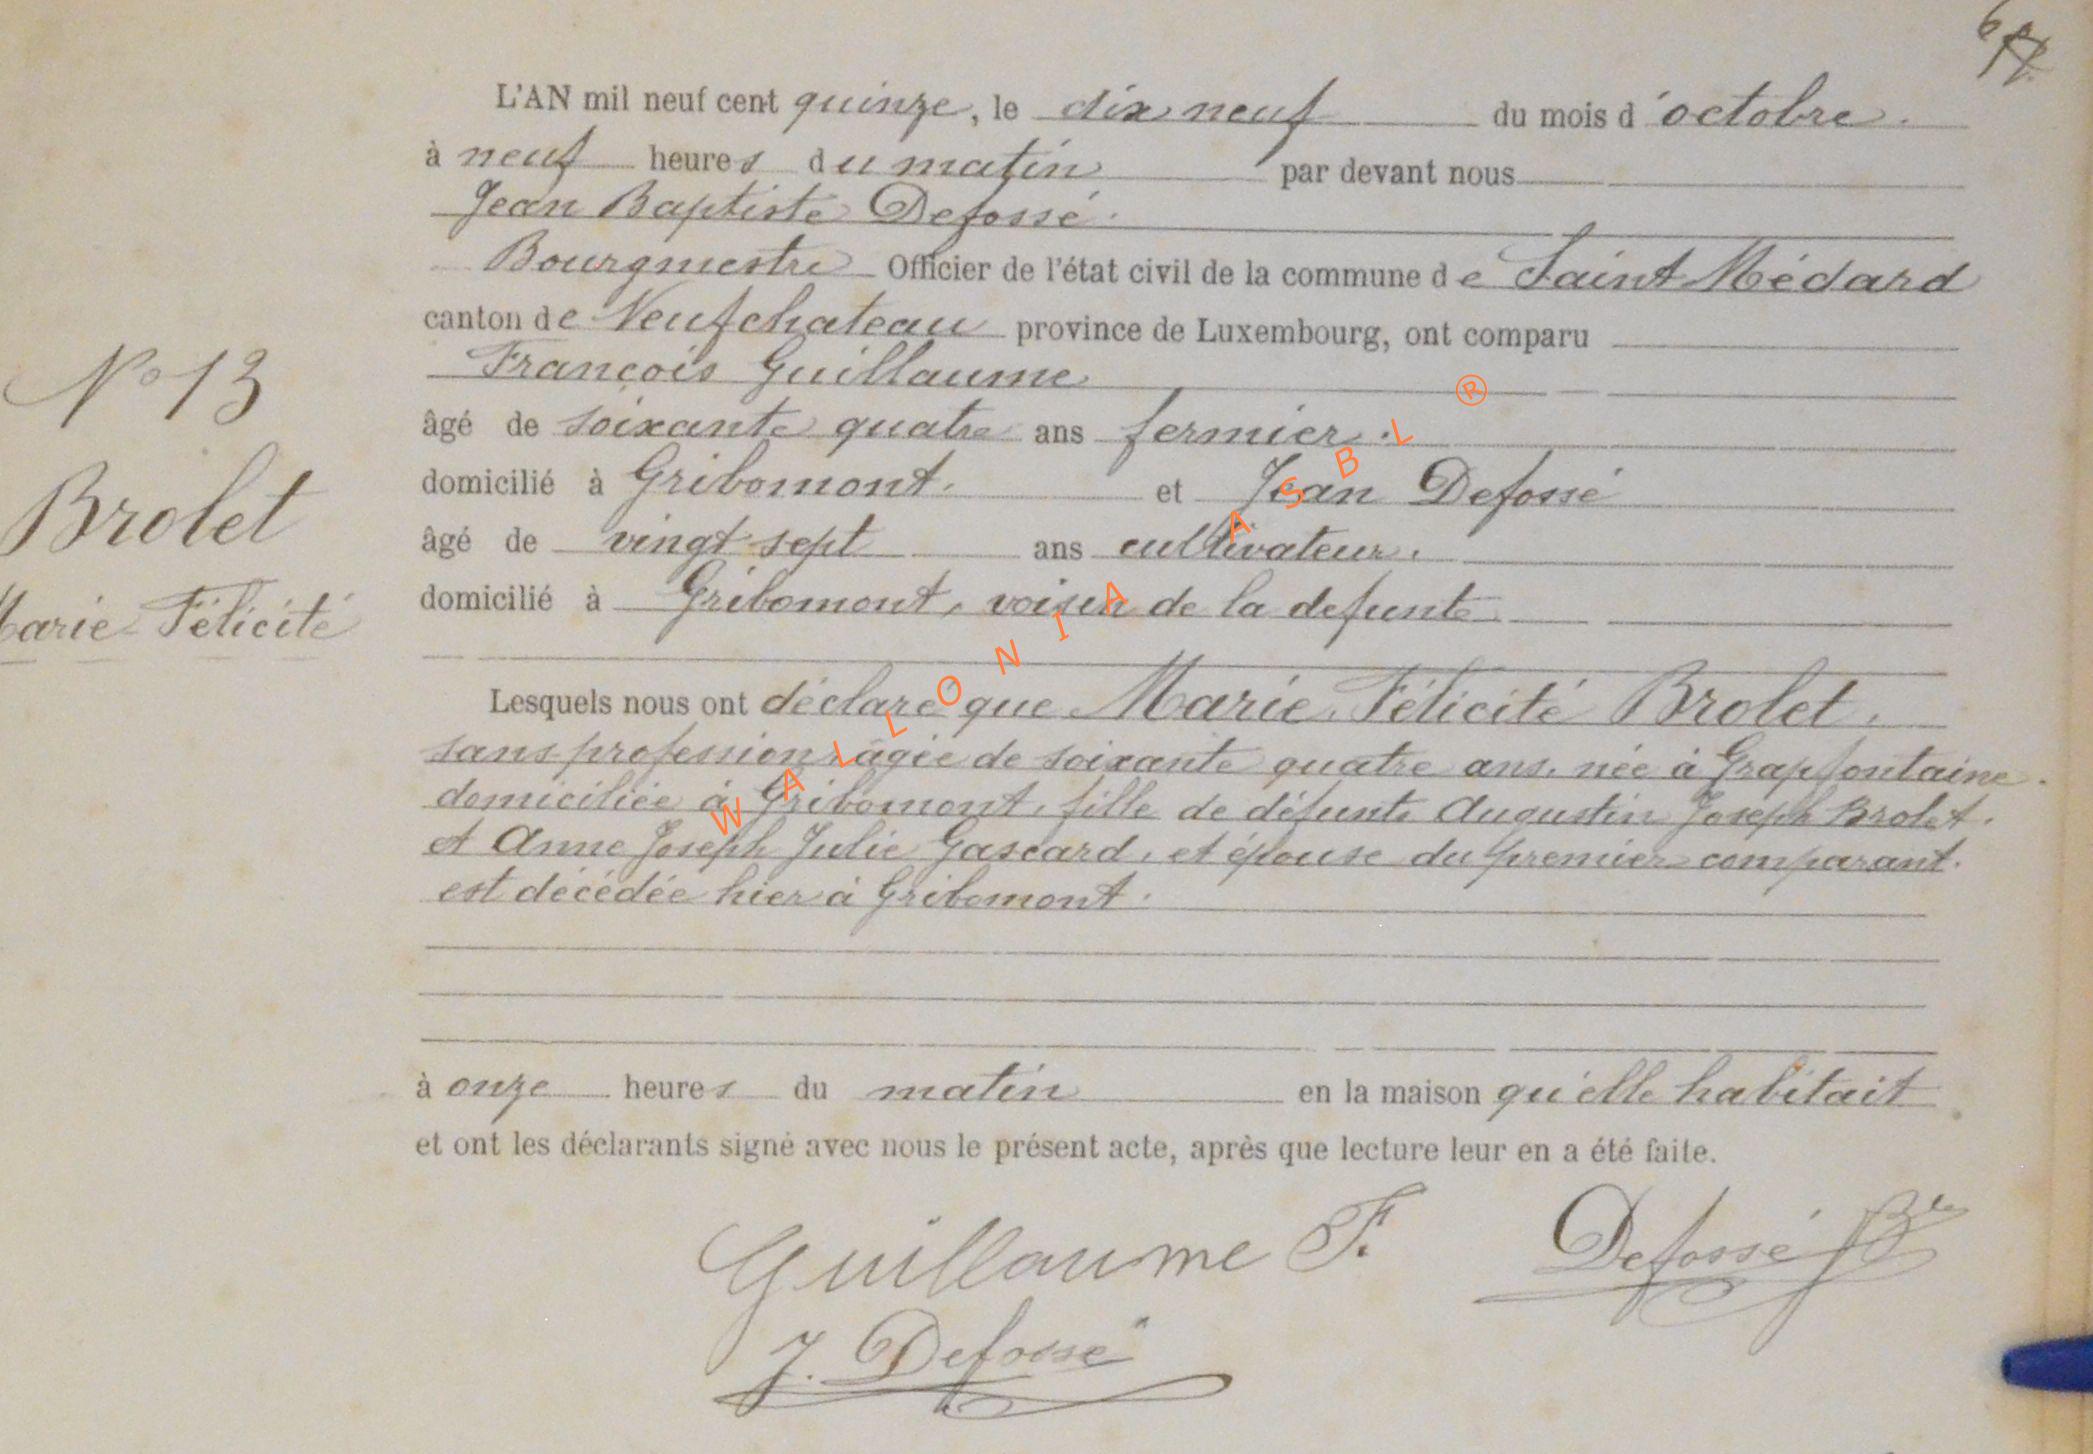 L'AN mil neuf cent quinze, le dix neuf du mois d'octobre.
à neuf heures du matin par devant nous
Jean Baptiste Defossé.
Bourgmestre Officier de l'état civil de la commune de Saint Médard
canton de Neufchateau province de Luxembourg, ont comparu
François Guillaume
âgé de soixante quatre ans fermier.
domicilié à Gribomont. et Jean Defossé
âgé de vingt sept ans cultivateur.
domicilié à Gribomont, voisin de la defunte
N° 13
Brolet
Marie Félicité
Lesquels nous ont déclaré que Marie Félicité Brolet.
sans profession, âgée de soixante quatre ans, née à Grapfontaine.
domiciliée à Gribomont, fille de défunts Augustin Joseph Brolet.
et Anne Joseph Julie Gascard, et épouse du premier comparant.
est décédée hier à Gribomont.
à onze heures du matin en la maison qu'elle habitait
et ont les déclarants signé avec nous le présent acte, après que lecture leur en a été faite.
Guillaume F.
Defossé JBte
J. Defossé
WALLONIA ASBL ®